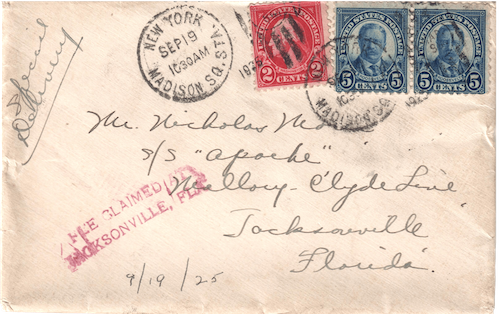 Special
Delivery
NEW YORK
SEP 19
10 30 AM
MADISON SQ. STA.
192
UNITED STATES POSTAGE
2 CENTS 2
UNITED STATES POSTAGE
5 CENTS 5
UNITED STATES POSTAGE
5 CENTS 5
MADISON SQ.
1925
Mr. Nicholas
S/S "Apache"
Mallory-Clyde Line
Jacksonville
Florida.
CLAIMED
JACKSONVILLE, FLA.
9/19/25